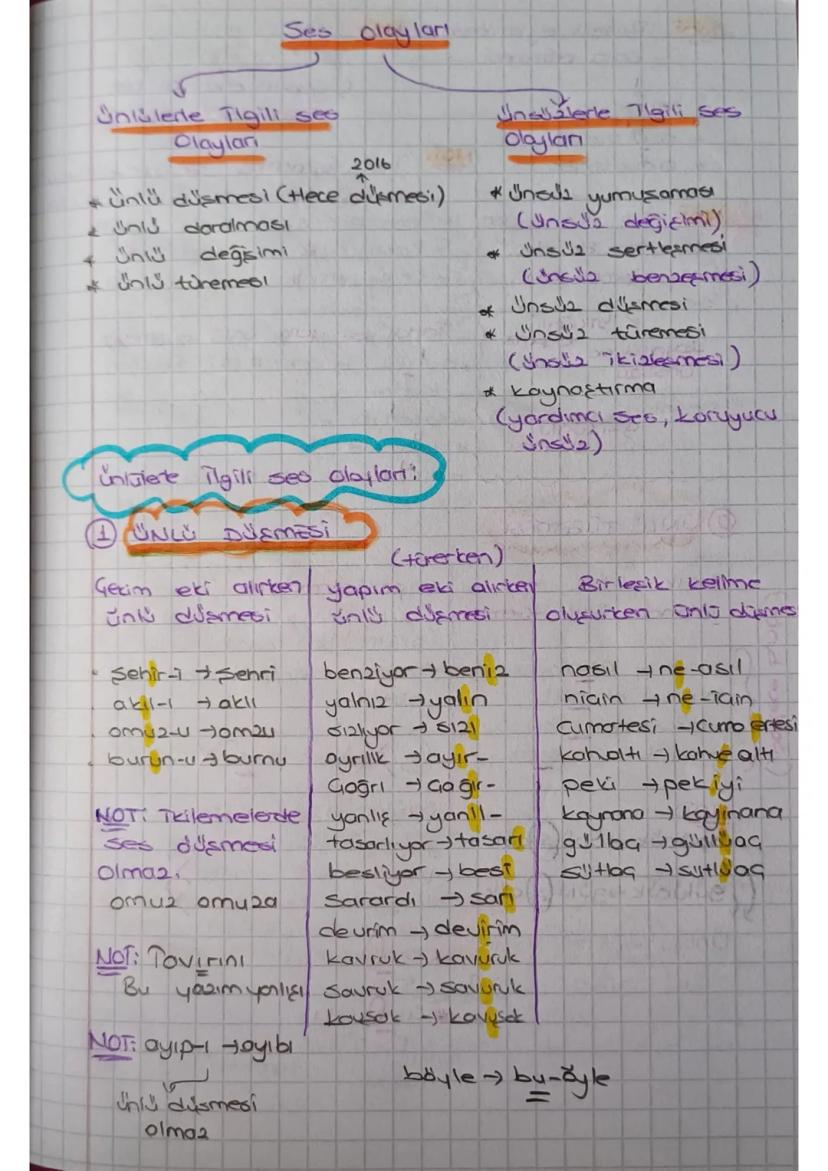 Ses Olayları
Ünlülerle İlgili ses
Olayları
2016
* Ünlü düşmesi (Hece düşmesi)
* Ünlü daralması
* Ünlü değişimi
* Ünlü türemesi
Ünsüzlerle İlgili ses
Olayları
* Ünsüz yumuşaması
(Ünsüz değişimi)
* Ünsüz sertleşmesi
(Ünsüz benzeşmesi)
* Ünsüz düşmesi
* Ünsüz türemesi
(Ünsüz ikizleşmesi)
* Kaynaştırma
(yardımcı ses, koruyucu
ünsüz)
Ünlülerle İlgili ses olayları:
① ÜNLÜ DÜŞMESİ
Çekim eki alırken
ünlü düşmesi
· şehir-i → şehri
· akıl-ı → aklı
· omuz-u → omzu
· burun-u → burnu
NOT: İkilemelerde
ses düşmesi
olmaz.
omuz omuza
NOT: Tavırını
Bu yazım yanlışı
NOT: ayıp-ı → ayıbı
ünlü düşmesi
olmaz
(türerken)
yapım eki alırken
ünlü düşmesi
benziyor → beniz
yalnız → yalın
sızlıyor → sızı
ayrılık → ayır-
çağrı → çağır-
yanlış → yanıl-
tasarlıyor → tasarı
besliyor → besi
sarardı → sarı
devrim → devirim
kavruk → kavuruk
savruk → savuruk
kavşak → kavuşak
Birleşik kelime
oluşurken ünlü düşmes
nasıl → ne-asıl
niçin → ne-için
cumartesi → cuma ertesi
kahvaltı → kahve altı
peki → pek iyi
kaynana → kayınana
güllaç → güllüaç
sütlaç → sütlüaç
böyle → bu-öyle